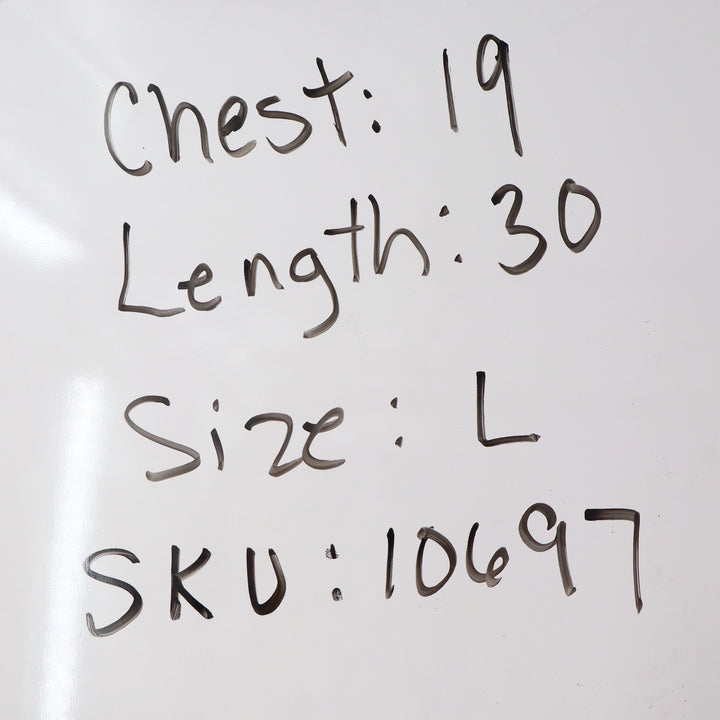 Chest: 19
Length: 30
Size: L
SKU: 10697